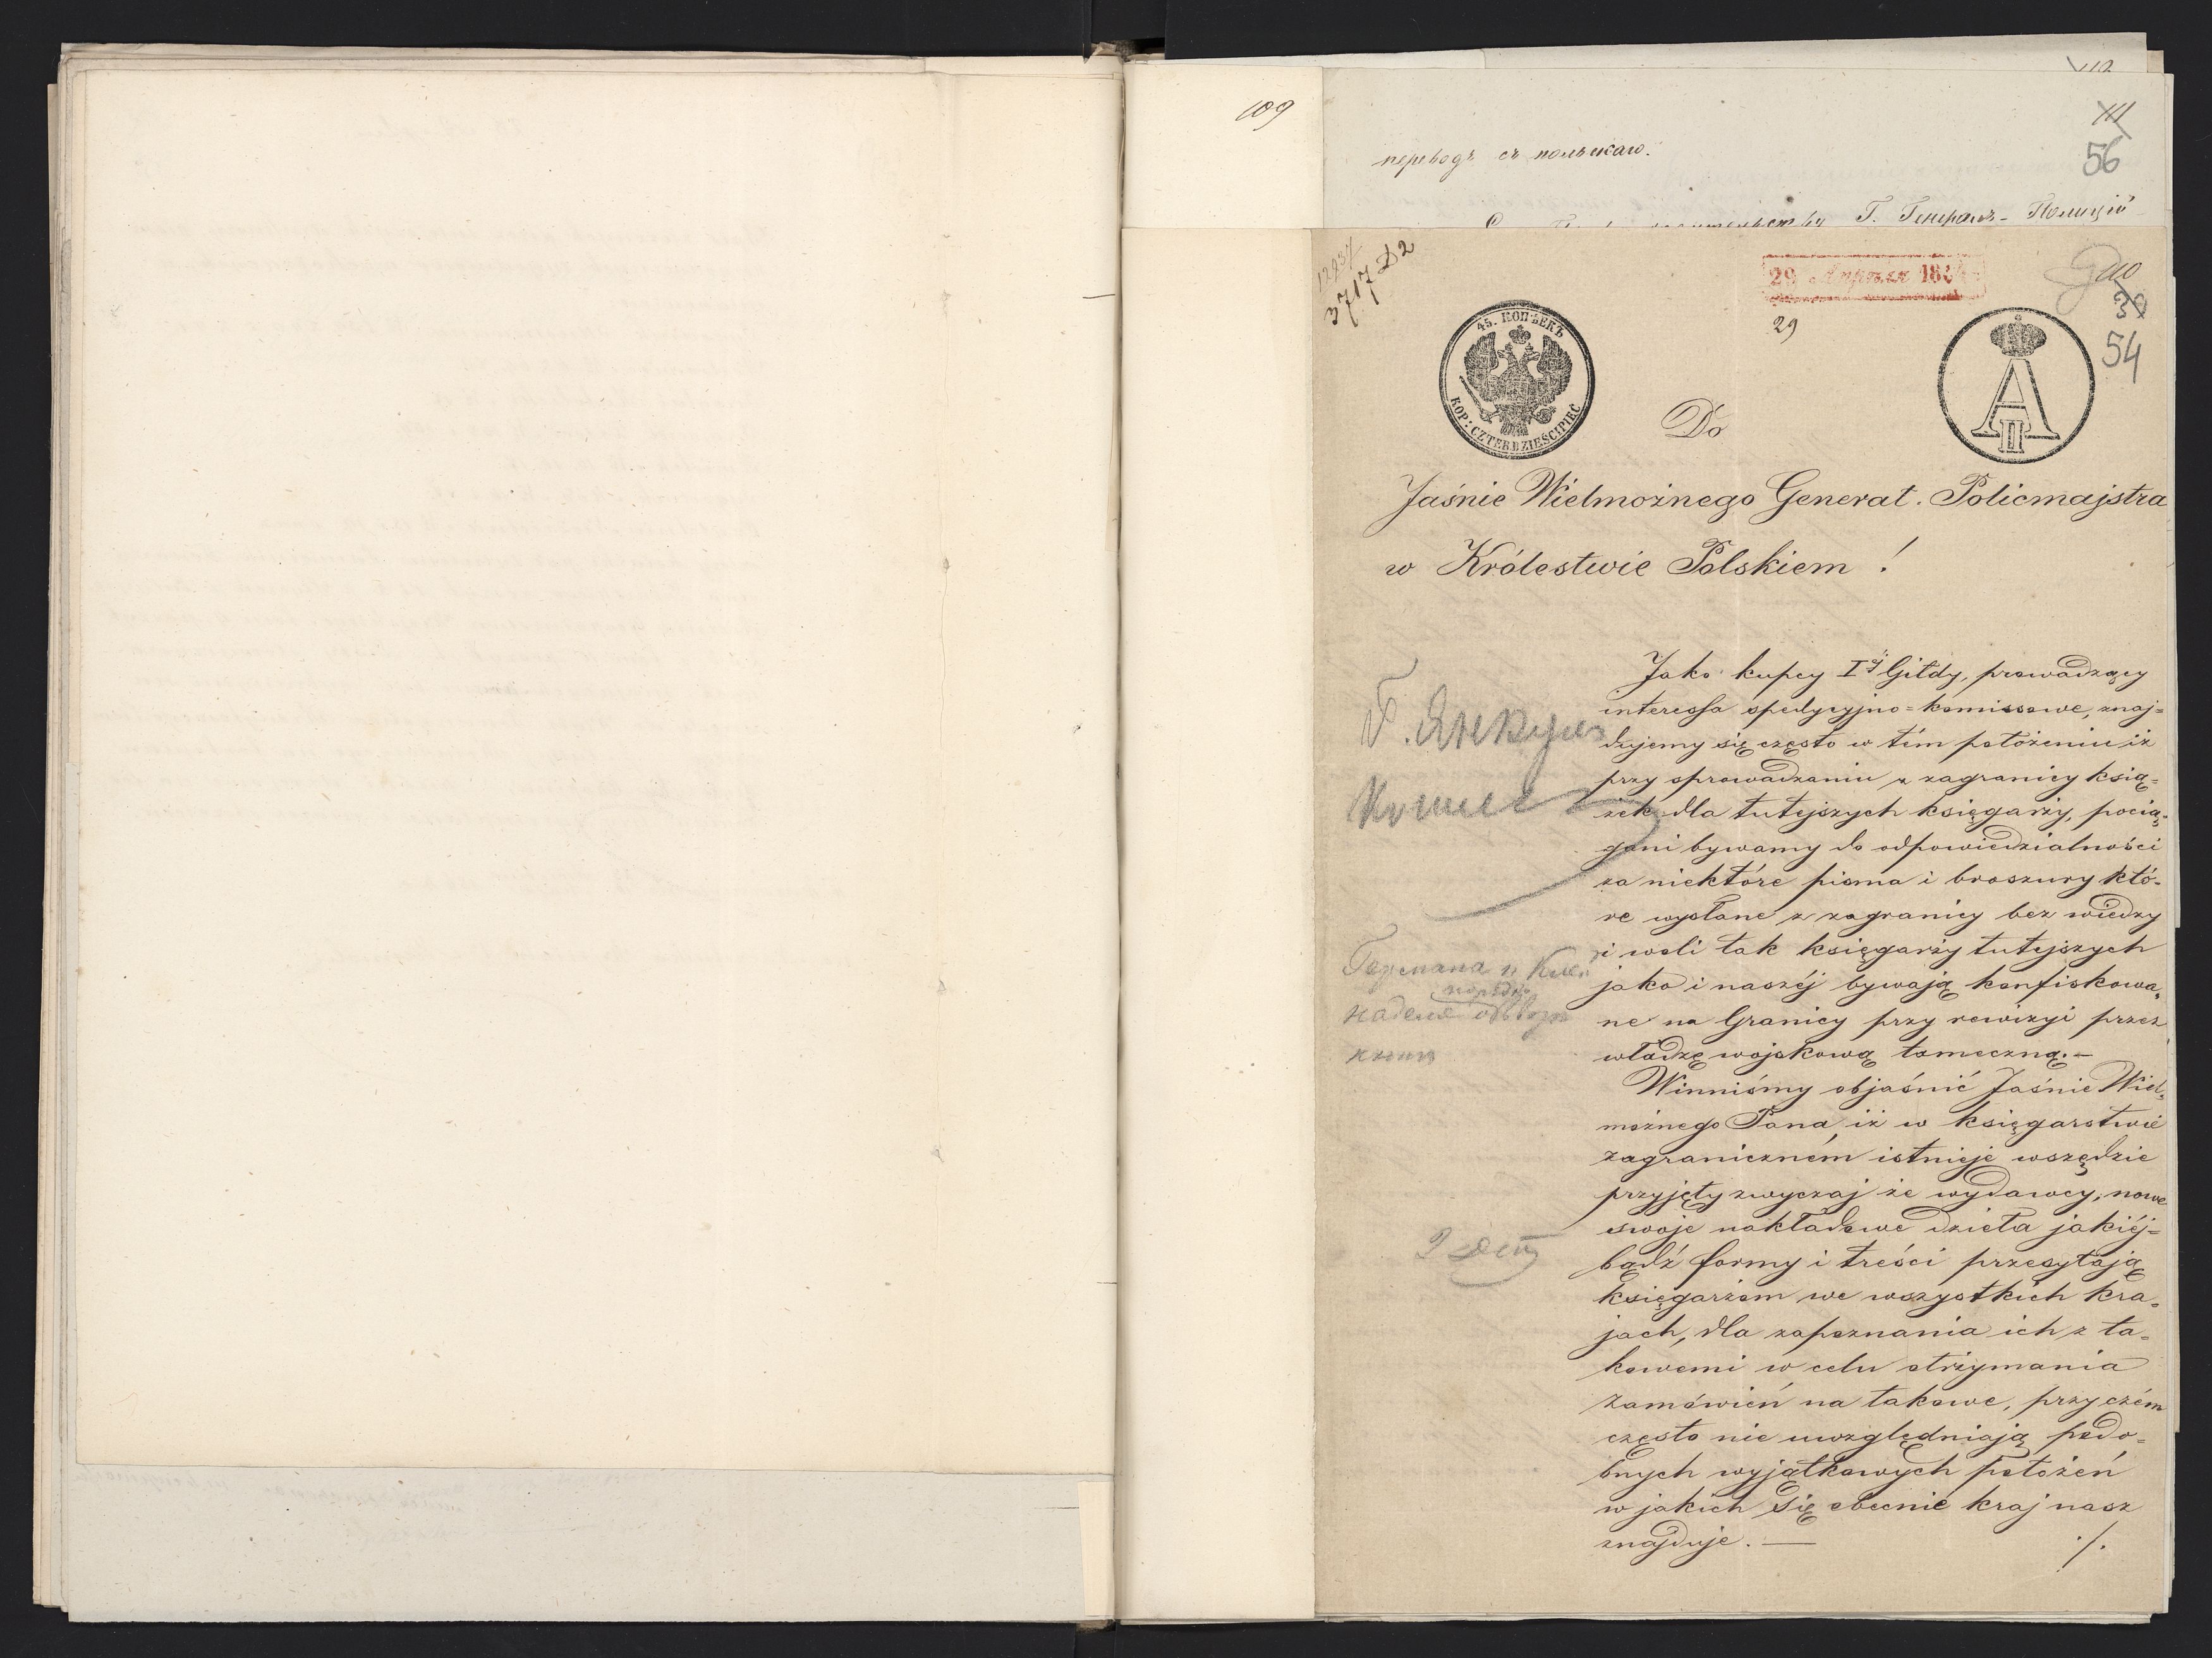 109
112
111
56
переводъ съ польскаго.
Г. Генералъ-Полиції
12237
3717 D2
29 Апрѣля 186
29
110
30
54
45. КОПѢЕКЪ
KOP: CZTERDZIEŚCIPIĘĆ
А II
Do
Jaśnie Wielmożnego Generał. Policmajstra
w Królestwie Polskiem!
Jako kupcy Iéj Gildy, prowadzący
interessa spedycyjno=komissowe, znaj=
dujemy się często w tém położeniu iż
przy sprowadzaniu z zagranicy ksią=
żek dla tutejszych księgarzy, pocią=
gani bywamy do odpowiedzialności
za niektóre pisma i broszury któ-
re wysłane z zagranicy bez wiedzy
i woli tak księgarzy tutejszych
jako i naszéj bywają konfiskowa=
ne na Granicy przy rewizyi przez
władzę wojskową tameczną.—
Winniśmy objaśnić Jaśnie Wiel=
możnego Pana, iż w księgarstwie
zagraniczném istnieje wszędzie
przyjęty zwyczaj że wydawcy, nowe
swoje nakładowe dzieła jakiéj=
bądź formy i treści przesyłają
księgarzom we wszystkich kra=
jach, dla zapoznania ich z ta=
kowemi w celu otrzymania
zamówień na takowe, przyczém
często nie uwzględniają podo=
bnych wyjątkowych położeń
w jakich się obecnie kraj nasz
znajduje. — ./.